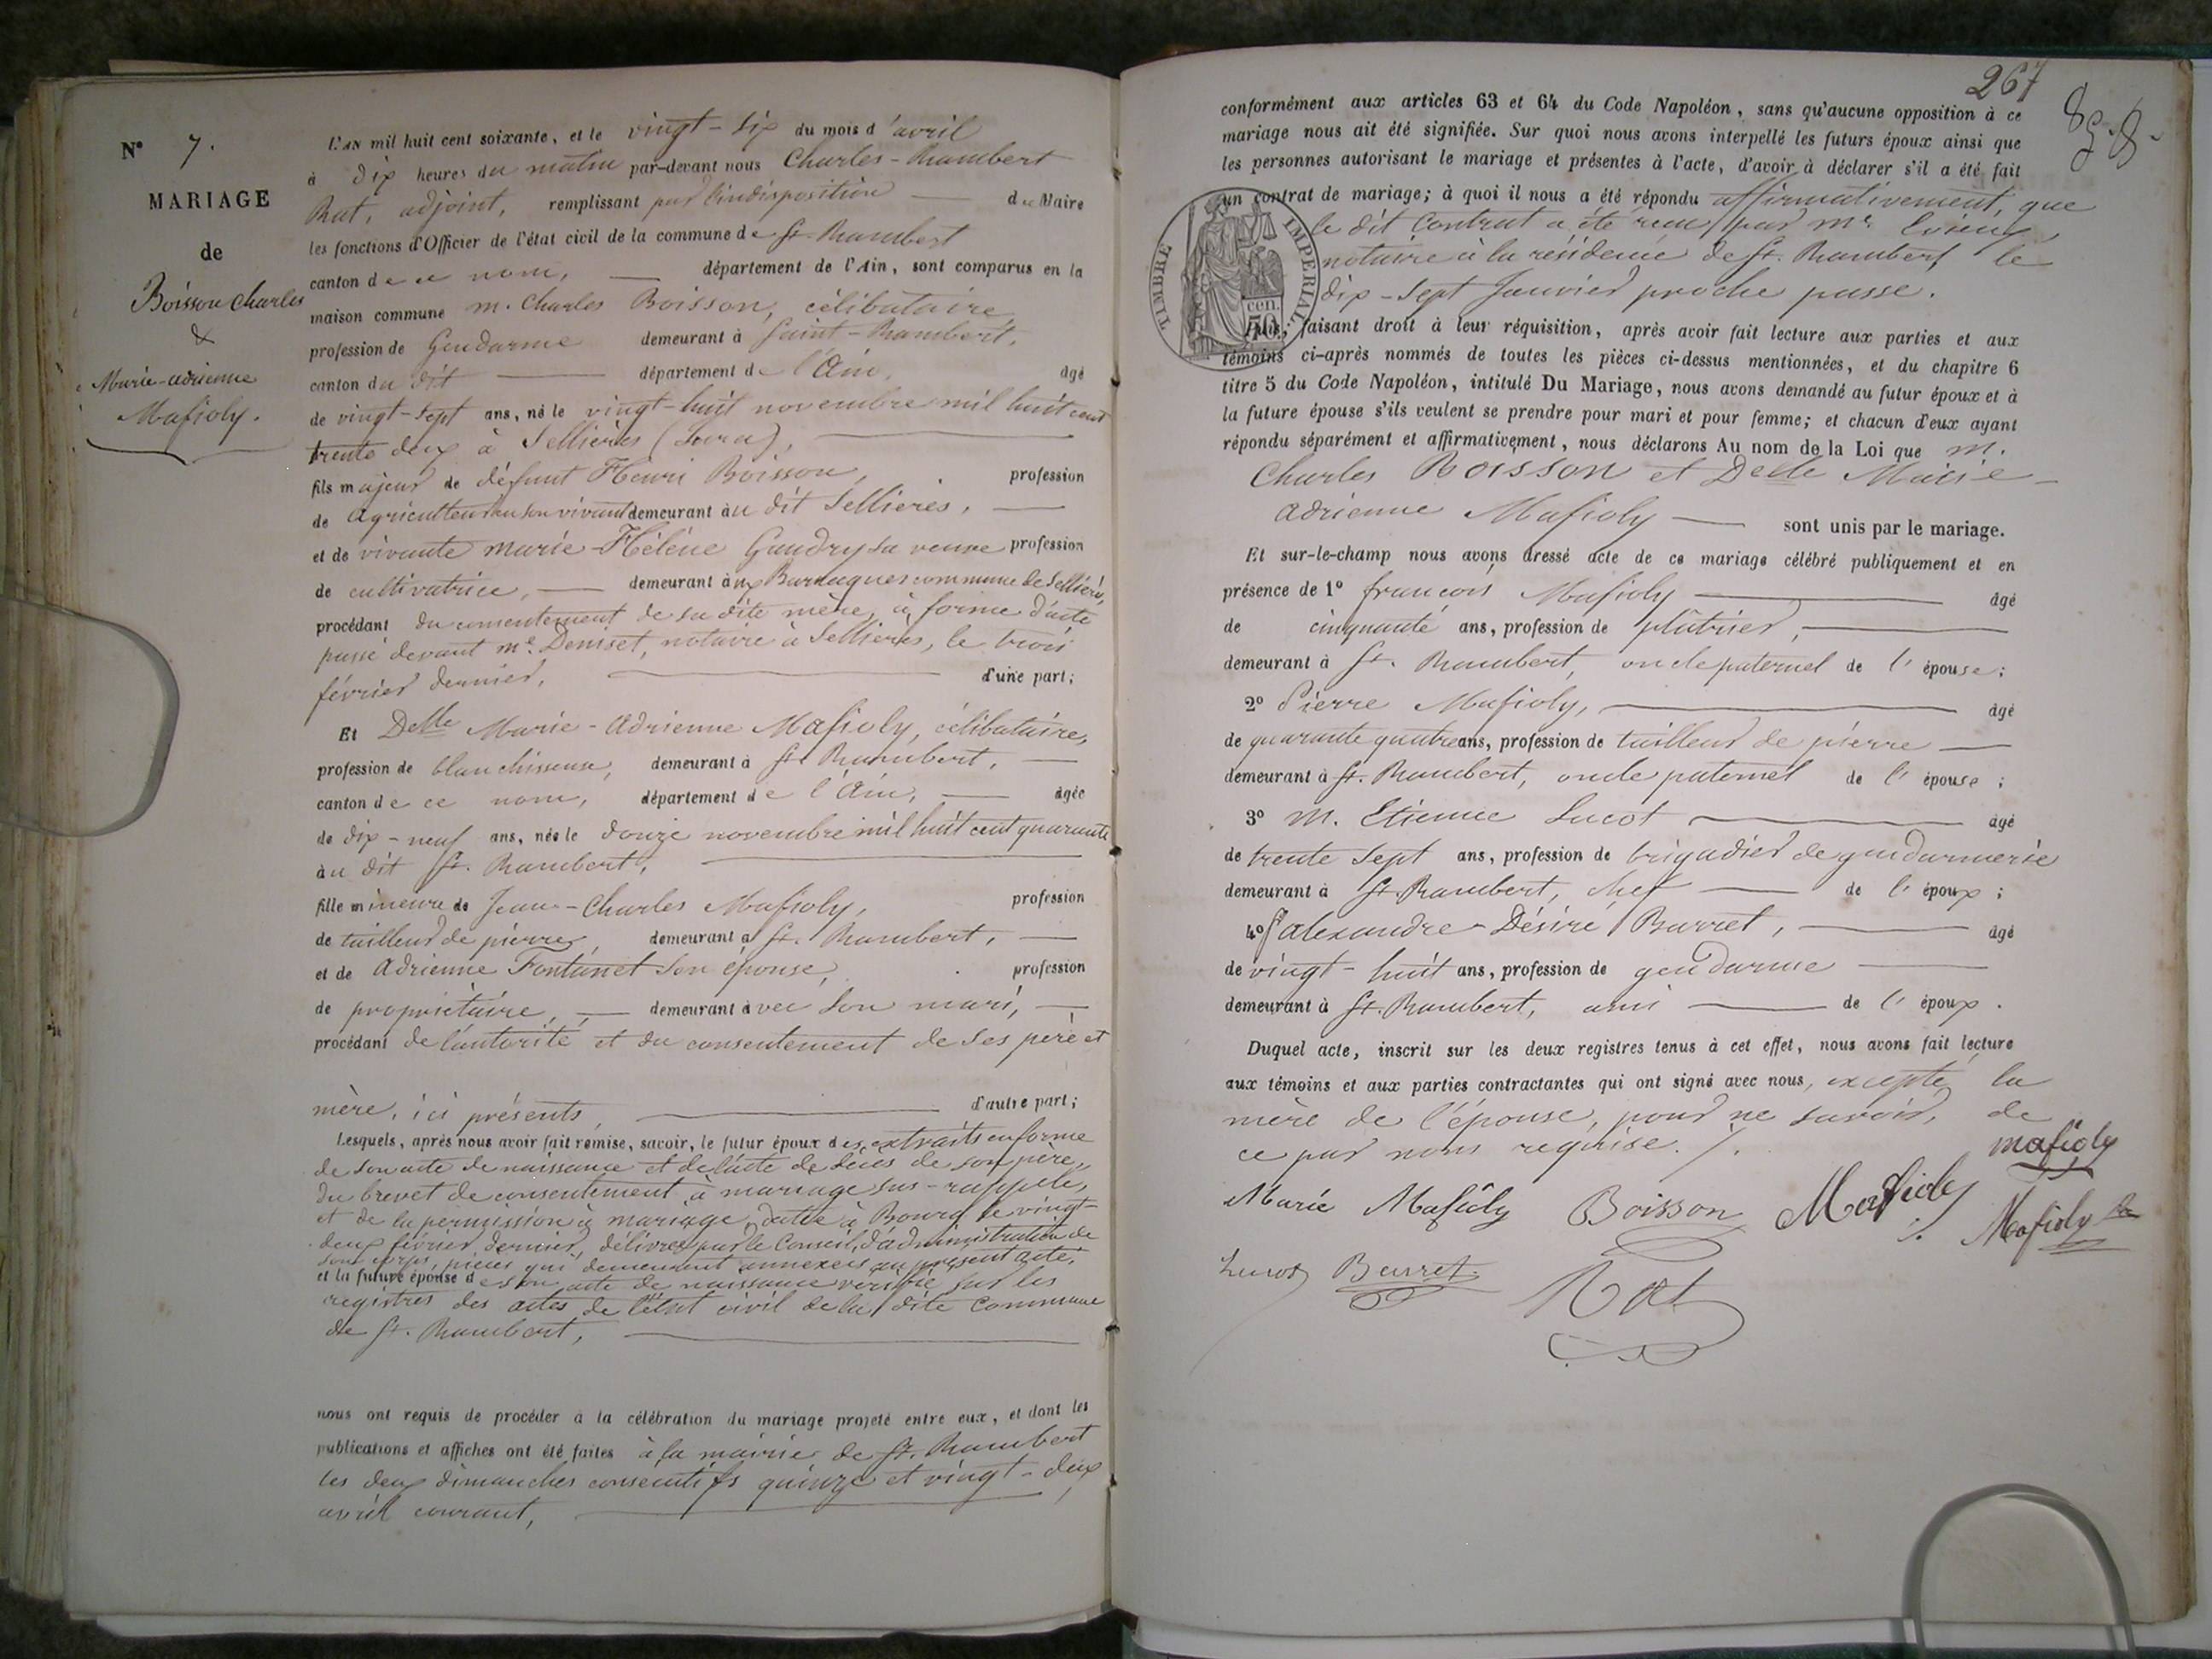 N° 7.
MARIAGE
de
Boisson Charles
&
Marie-adrienne
Mafioly.
L'AN mil huit cent soixante, et le vingt-six du mois d'avril
à dix heures du matin par-devant nous Charles-Rambert
Rat, adjoint, remplissant par l'indisposition du Maire
les fonctions d'Officier de l'état civil de la commune de St. Rambert
canton de ce nom, département de l'Ain, sont comparus en la
maison commune m. Charles Boisson, célibataire
profession de Gendarme demeurant à Saint-Rambert,
canton du dit département de l'Ain, âgé
de vingt-sept ans, né le vingt-huit novembre mil huit cent
trente deux à Sellières (Jura),
fils majeur de défunt Henri Boisson, profession
de agriculteur en son vivant demeurant au dit Sellières,
et de vivante marie-Hélène Gaudry sa veuve profession
de cultivatrice, demeurant aux Barraques commune de Sellières,
procédant du consentement de sa dite mère, à forme d'acte
passé devant me. Denisset, notaire à Sellières, le trois
février dernier, d'une part;
Et Delle Marie-Adrienne Mafioly, célibataire,
profession de blanchisseuse, demeurant à St. Rambert,
canton de ce nom, département de l'Ain, âgée
de dix-neuf ans, née le douze novembre mil huit cent quarante
au dit St. Rambert,
fille mineure de Jean-Charles Mafioly, profession
de tailleur de pierres, demeurant à St. Rambert,
et de Adrienne Fontanet son épouse, profession
de propriétaire, demeurant avec son mari,
procédant de l'autorité et du consentement de ses père et
mère, ici présents, d'autre part;
Lesquels, après nous avoir fait remise, savoir, le futur époux des extraits en forme
de son acte de naissance et de l'acte de décès de son père,
du brevet de consentement à mariage sus-rappelé,
et de la permission à mariage, datée à Bourg le vingt-
deux février dernier, délivrée par le Conseil d'administration de
son corps, pièces qui demeurent annexées au présent acte,
et la future épouse de son acte de naissance vérifié sur les
registres des actes de l'état civil de la dite commune
de St. Rambert,
nous ont requis de procéder à la célébration du mariage projeté entre eux, et dont les
publications et affiches ont été faites à la mairie de St. Rambert
les deux dimanches consécutifs quinze et vingt-deux
avril courant,
267
conformément aux articles 63 et 64 du Code Napoléon, sans qu'aucune opposition à ce
mariage nous ait été signifiée. Sur quoi nous avons interpellé les futurs époux ainsi que
les personnes autorisant le mariage et présentes à l'acte, d'avoir à déclarer s'il a été fait
un contrat de mariage; à quoi il nous a été répondu affirmativement, que
le dit contrat a été reçu par me
notaire à la résidence de St. Rambert le
dix-sept Janvier proche passé.
TIMBRE IMPERIAL
50 cen.
Puis, faisant droit à leur réquisition, après avoir fait lecture aux parties et aux
témoins ci-après nommés de toutes les pièces ci-dessus mentionnées, et du chapitre 6
titre 5 du Code Napoléon, intitulé Du Mariage, nous avons demandé au futur époux et à
la future épouse s'ils veulent se prendre pour mari et pour femme; et chacun d'eux ayant
répondu séparément et affirmativement, nous déclarons Au nom de la Loi que m.
Charles Boisson et Delle Marie-
adrienne Mafioly sont unis par le mariage.
Et sur-le-champ nous avons dressé acte de ce mariage célébré publiquement et en
présence de 1° françois Mafioly âgé
de cinquante ans, profession de plâtrier,
demeurant à St. Rambert, oncle paternel de l'épouse;
2° Pierre Mafioly, âgé
de quarante quatre ans, profession de tailleur de pierre
demeurant à St. Rambert, oncle paternel de l'épouse;
3° M. Etienne Lucot âgé
de trente sept ans, profession de brigadier de gendarmerie
demeurant à St. Rambert, chef de l'époux;
4° alexandre-Désiré Barret, âgé
de vingt-huit ans, profession de gendarme
demeurant à St. Rambert, ami de l'époux.
Duquel acte, inscrit sur les deux registres tenus à cet effet, nous avons fait lecture
aux témoins et aux parties contractantes qui ont signé avec nous, excepté la
mère de l'épouse, pour ne savoir, de
ce par nous requise./.
mafioly
Marie Mafioly Boisson Mafioly Mafioly
Lucot Barret
Rat